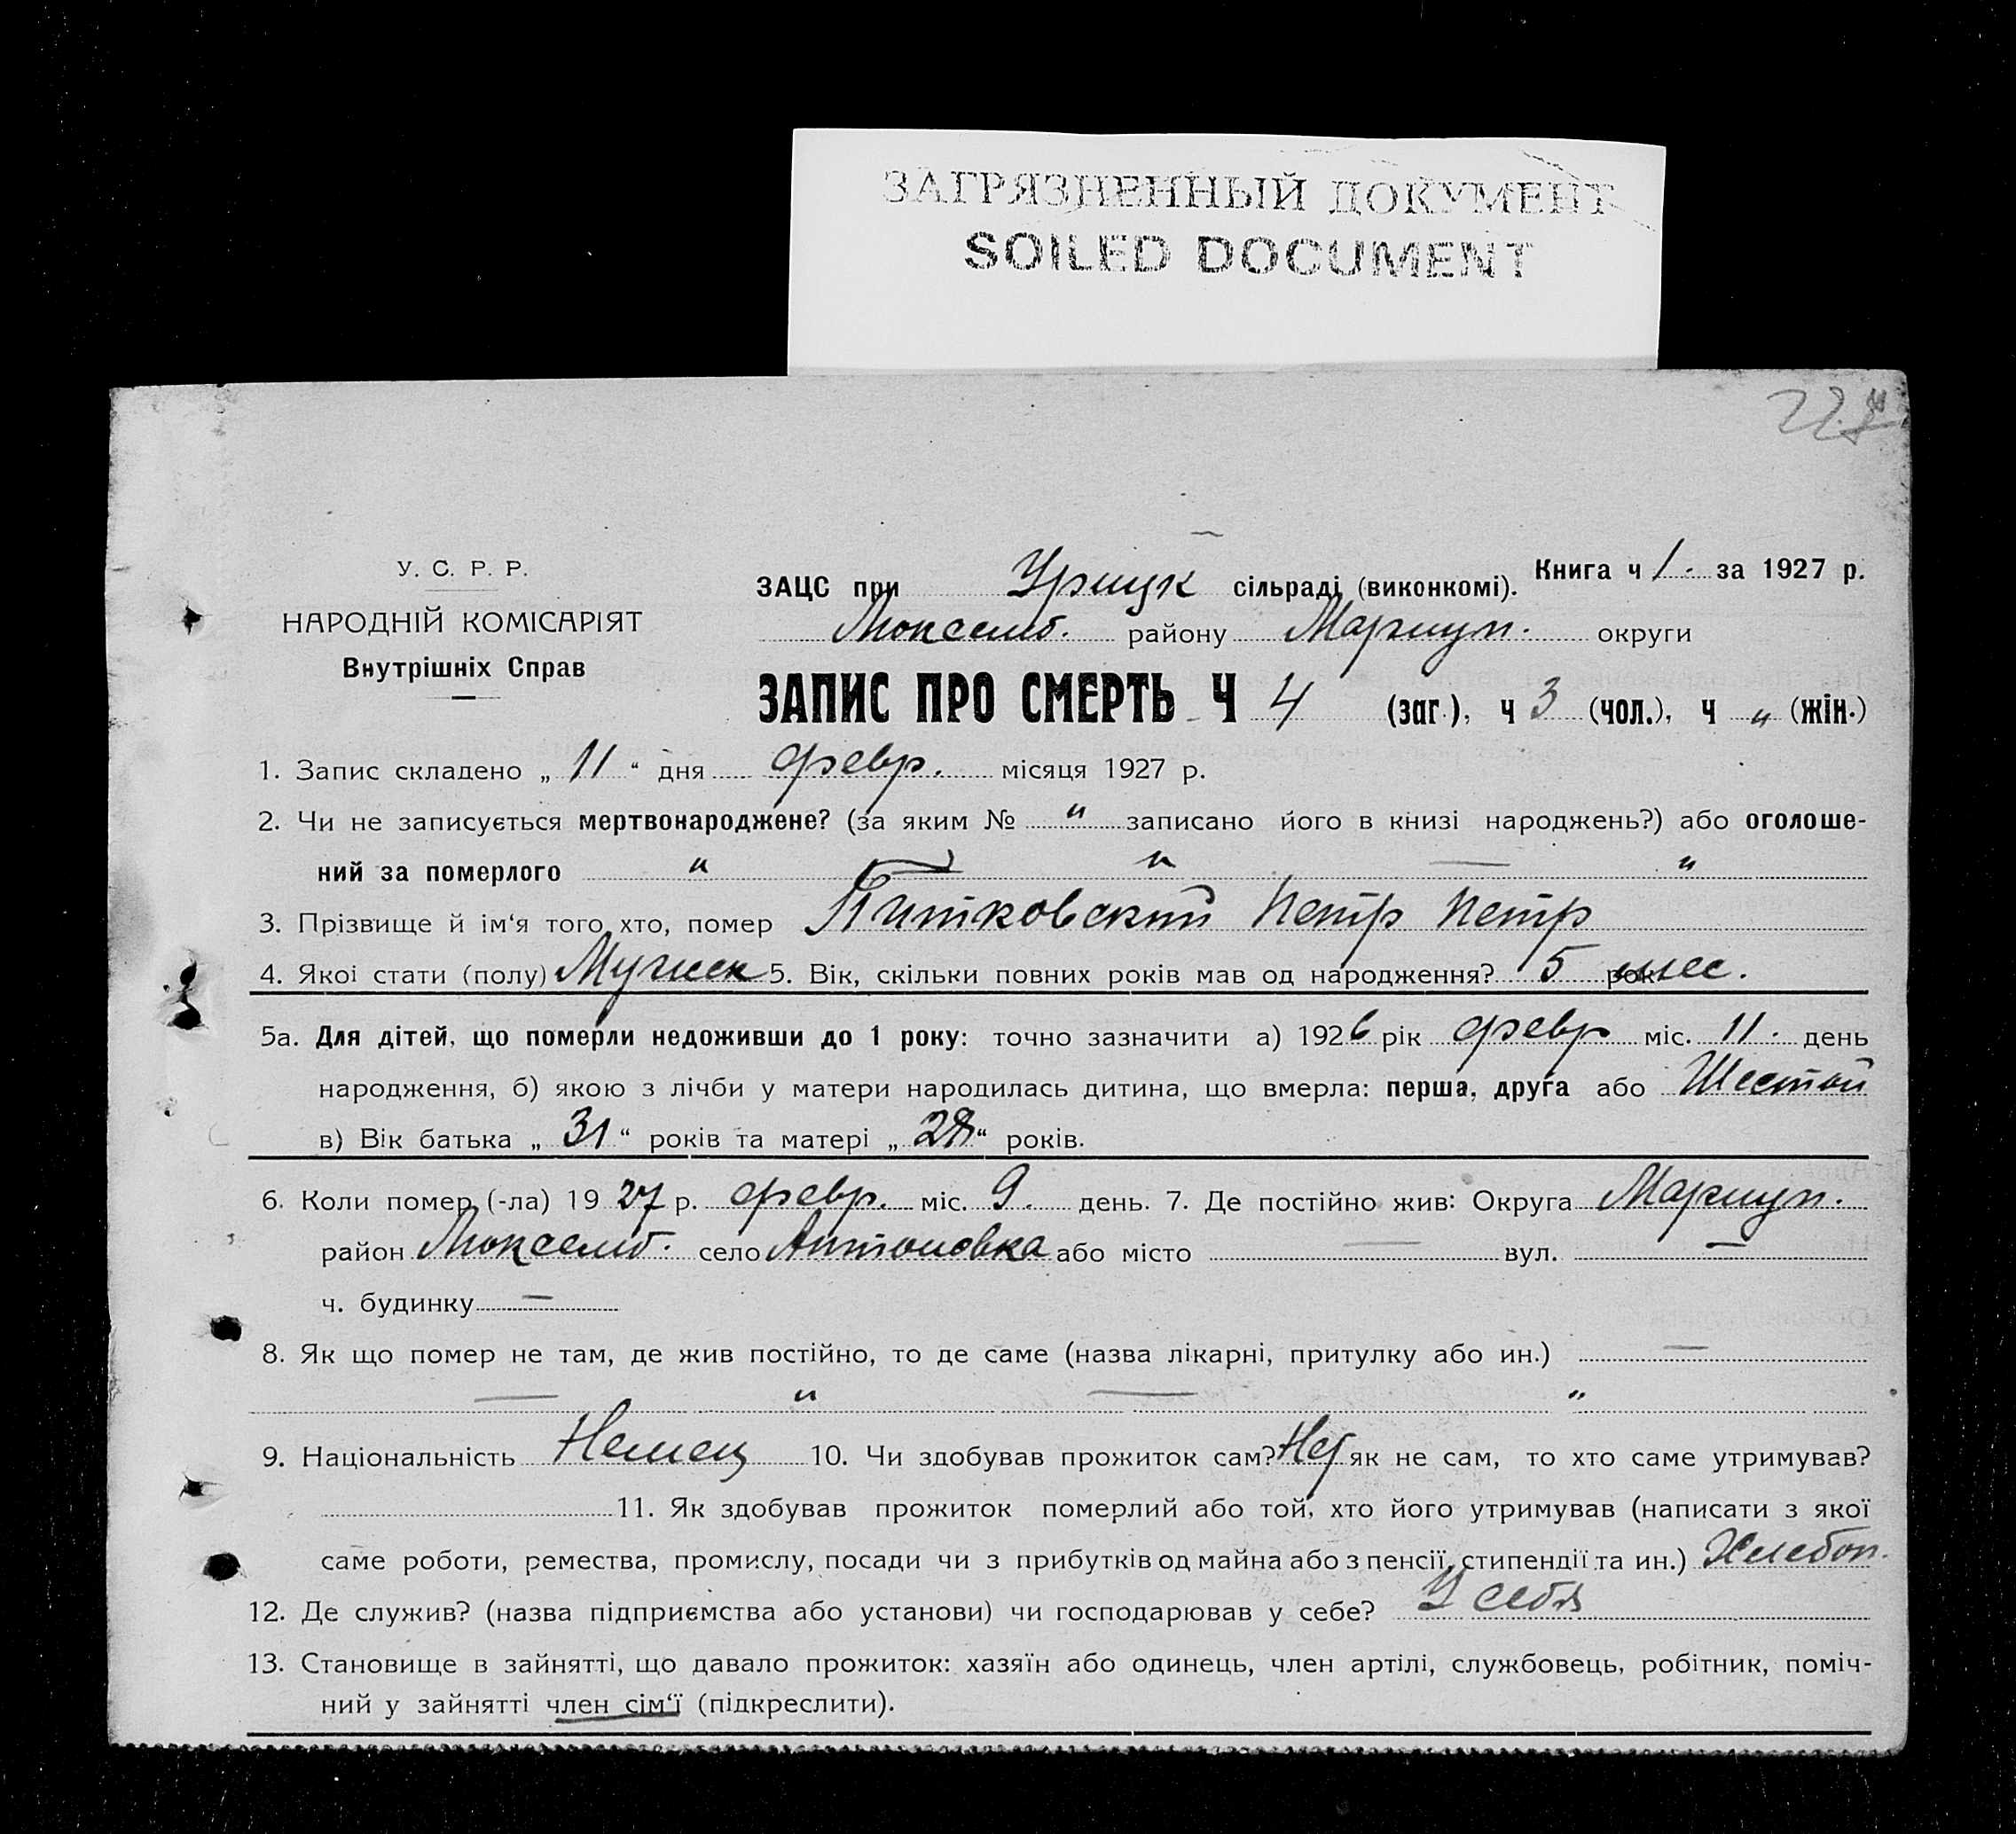 ЗАГРЯЗНЕННЫЙ ДОКУМЕНТ
SOILED DOCUMENT
У. С. Р. Р.
НАРОДНІЙ КОМІСАРІЯТ
Внутрішніх Справ
Книга ч 1. за 1927 р.
ЗАЦС при Урицк сільраді (виконкомі).
Люксемб. району Мариуп. округи
ЗАПИС ПРО СМЕРТЬ Ч 4 (заг.), ч 3 (чол.), ч „ (жін.)
1. Запис складено „ 11 “ дня февр. місяця 1927 р.
2. Чи не записується мертвонароджене? (за яким № „ записано його в книзі народжень?) або оголоше-
ний за померлого „ „ — „
3. Прізвище й ім‘я того хто, помер Питковский Петр Петр
4. Якої стати (полу) Мужск 5. Вік, скільки повних років мав од народження? 5 рок мес.
5а. Для дітей, що померли недоживши до 1 року: точно зазначити а) 1926 рік февр міс. 11. день
народження, б) якою з лічби у матери народилась дитина, що вмерла: перша, друга або Шестой
в) Вік батька „ 31 “ років та матері „ “ років.
6. Коли помер (-ла) 1927 р. февр. міс. 9. день. 7. Де постійно жив: Округа Мариуп.
район Люксемб. село Антоновка або місто — вул. —
ч. будинку —
8. Як що помер не там, де жив постійно, то де саме (назва лікарні, притулку або ин.) —
— „ — „
9. Національність Немец 10. Чи здобував прожиток сам? Нет як не сам, то хто саме утримував?
11. Як здобував прожиток померлий або той, хто його утримував (написати з якої
саме роботи, ремества, промислу, посади чи з прибутків од майна або з пенсії, стипендії та ин.) Хлебоп.
12. Де служив? (назва підприємства або установи) чи господарював у себе? У себя
13. Становище в зайнятті, що давало прожиток: хазяїн або одинець, член артілі, службовець, робітник, поміч-
ний у зайнятті член сім‘ї (підкреслити).